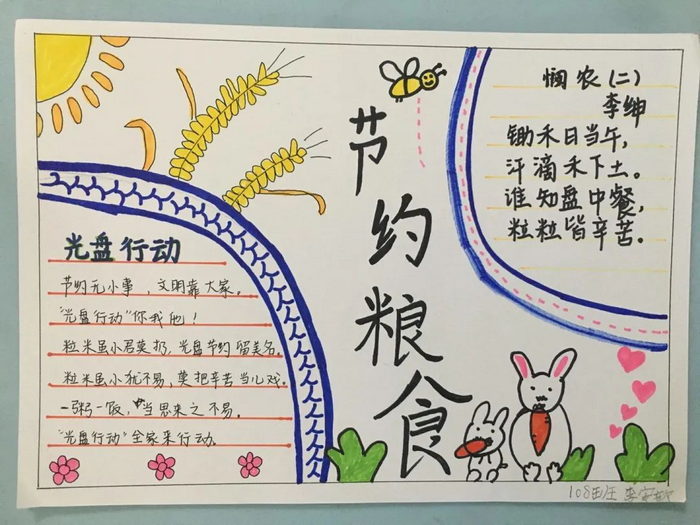 节约粮食
悯农(二)
李绅
锄禾日当午,
汗滴禾下土。
谁知盘中餐,
粒粒皆辛苦.
光盘行动
节约无小事,文明靠大家。
"光盘行动"你我他!
粒米虽小君莫扔,光盘节约留美名。
粒米虽小犹不易,莫把辛苦当儿戏。
一粥一饭,当思来之不易.
"光盘行动"全家来行动.
108班 李